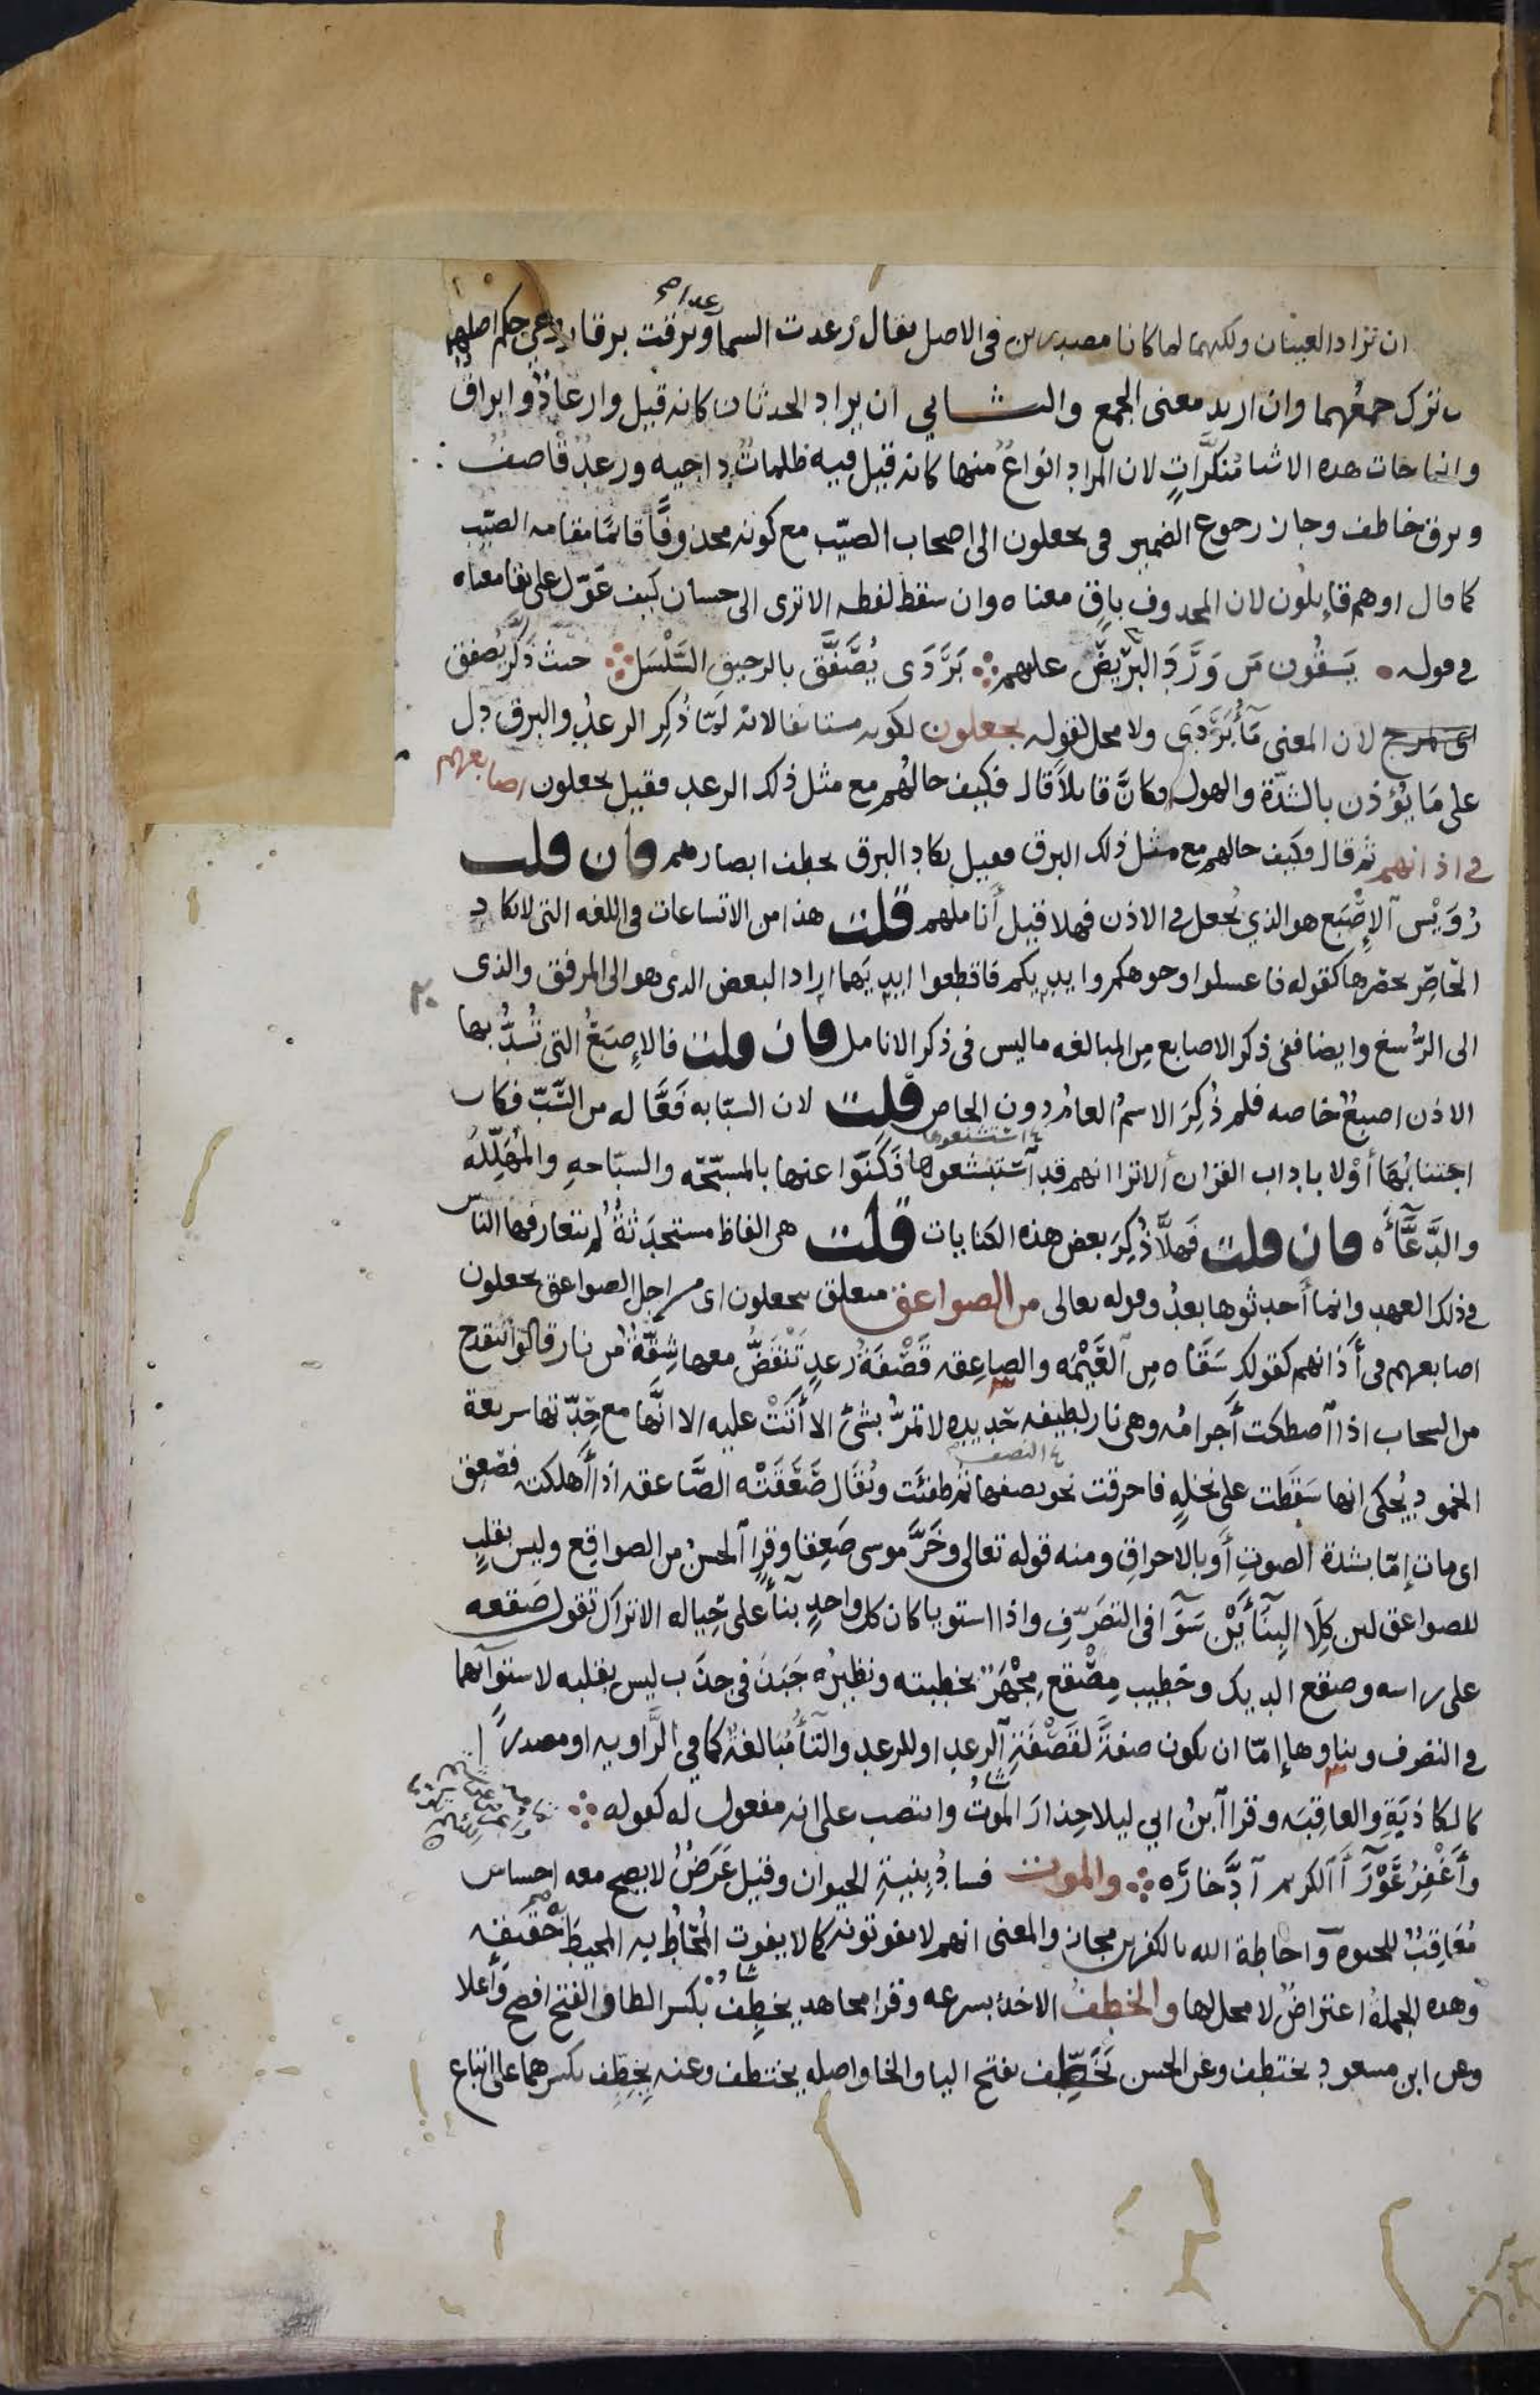 ان تراد العينان ولكنهما لما كانا مصدرين فى الاصل يقال رعدت السما رعدا وبرقت برقا روعى حكم اصلهما
بان ترك جمعهما وان اريد معنى الجمع والثـــانى ان يراد الحدثان كانه قيل وارعادٌ وابراقٌ
وانما جات هذه الاشيا منكَّراتٍ لان المراد انواعٌ منها كانه قيل فيه ظلماتٌ داجيه ورعدٌ قاصفٌ
وبرق خاطف وجاز رجوع الضمير فى يجعلون الى اصحاب الصيّب مع كونه محذوفًا قائمًا مقامه الصيّب
كما قال اوهم قائلون لان المحذوف باقٍ معناه وان سقط لفظه الا ترى الى حسان كيف عَوّل على بقا معناه
فى قوله يَسقُون مَن وَرَدَ البَريصَ عليهم ⁘ بَرَدَى يُصَفَّق بالرحيق السَّلْسَل ⁘ حيث ذكّر يُصفق
لان المعنى مآءُ بَرَدَى ولا محل لقوله يجعلون لكونه مستانفا لانه لمّا ذُكِر الرعدُ والبرق دل
على مَا يُؤذن بالشدّة والهول فكانَّ قايلاً قال فكيف حالهُم مع مثل ذلك الرعد فقيل يجعلون اصابعهم
فى اذانهم ثم قال فكيف حالهم مع مثل ذلك البرق فقيل يكاد البرق يخطف ابصارهم فان قلت
رُوَيْس الإصْبَع هو الذي يُجعل فى الاذن فهلا قيل أناملهم قلت هذا من الاتساعات فى اللغه التى لا يكاد
الحَاصِر يحصرها كقوله فاغسلوا وجوهكم وايديكم فاقطعوا ايديَهما اراد البعض الذى هو الى المرفق والذى
الى الرُّسغ وايضا ففى ذكر الاصابع مِن المبالغه ما ليس فى ذكر الانامل فان قلت فالإصبَعُ التى تُسدُّ بها
الاذن اصبعٌ خاصه فلم ذُكِرَ الاسمُ العامُ دون الخاص قلت لان السبّابه فَعَّاله من السَّبّ فكان
اجتنابُهَا أوْلا باداب القران ألا ترا انهم قد استبشعوها فَكَنّوا عنها بالمسبّحه والسبّاحهِ والمُهَلِّلهِ
والدَّعَّاءَه فان قلت فَهلاَّ ذُكِرَ بعض هذه الكنايات قلت هى الفاظ مستحدَثةٌ لم يتعارفها الناس
فى ذلك العهد وانما أحدثوها بعدُ وقوله تعالى من الصواعق متعلق بيجعلون اى من اجل الصواعق يجعلون
اصابعهم فى أذانهم كقولك سَقَاه مِن العَيْمَه والصاعِقه قَصْفَةُ رعدٍ تَنْقَضُّ معها شِقّةٌ من نار قالوا تنقدح
من السحاب اذا اصطكت أجرامُه وهى نار لطيفه حَديده لا تمرُّ بشئ الا أتَتْ عليه الا انَّها مع حِدّتها سريعة
الخمود يُحكى انها سَقَطت على نخلهٍ فاحرقت نحو نصفها ثم طَفئت ويُقال صَعَقَتْه الصَّاعقه اذا أهلكته فصَعِق
اى مات إمّا بشدة الصوتِ أو بالاحراقِ ومنه قوله تعالى وخَرَّ موسى صَعِقا وقرا الحسن من الصواقِع وليس بقلبٍ
للصواعق لان كِلَا البِنَآئَيْن سَوَآ فى التصَرّفِ واذا استويا كان كل واحدٍ بنآءً على حِياله الا تراك تقول صَقعه
على راسه وصقع الديك وخَطيب مِصْقع مِجْهَرٌ بخطبته ونظيرُه جَبَذَ فى جذَب ليس بقلبه لاستوآئهما
فى التصرف وبناوها إمّا ان يكون صفةً لقَصْفَةِ الرعدِ او للرعد والتآءُ مُبَالغةً كما فى الرَّاويه او مصدرًا
كالكاذبَةِ والعاقِبَه وقرا ابنُ ابى ليلا حِذارَ الموتِ وانتصب على انه مفعول له كقوله ⁘
وأَغْفِرُ عَوْرَآءَ الكريم ادِّخَارَه ⁘ والموت فسادُ بِنيةِ الحيوان وقيل عَرَضٌ لا يصح معه احساس
مُعَاقِبٌ للحيوه واحاطة الله بالكفرين مجاز والمعنى انهم لا يفوتونه كما لا يفوت المُحَاطُ به المحيطَ حقيقه
وهذه الجملةُ اعتراضٌ لا محل لها والخطفُ الاخذُ بسرعه وقرا مجاهد يخطِفُ بكسر الطا والفتح افصح وأعلا
وعن ابن مسعود يختطف وعن الحسن يَخَطِّف بفتح اليا والخا واصله يختطف وعنه يِخِطِّف بكسرهما على اتباع